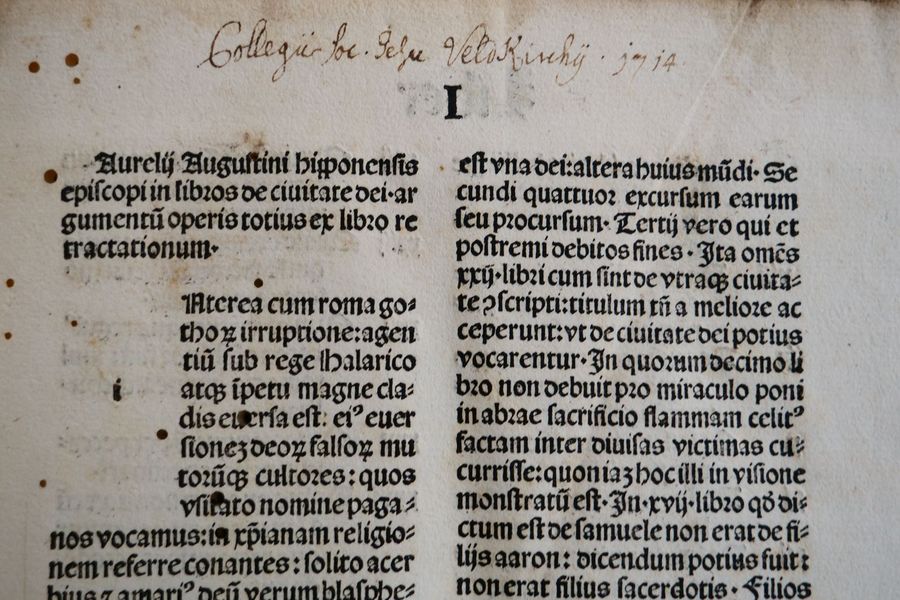 Collegii Soc. Jesu Veldkirchij. 1714
I
Aurelij Augustini hipponensis
episcopi in libros de ciuitate dei·ar
gumentū operis totius ex libro re
tractationum·
Nterea cum roma go⸗
thoꝝ irruptione:agen
tiū sub rege Halarico
atqꝫ īpetu magne cla⸗
dis euersa est: eiꝰ euer
sioneꝫ deoꝝ falsoꝝ mu
torūqꝫ cultores: quos
vsitato nomine paga⸗
i
nos vocamus:in xp̄ianam religio⸗
nem referre conantes: solito acer
bius ⁊ amariꝰ deū verum blasphe⸗
est vna dei:altera huius mūdi· Se
cundi quattuor excursum earum
seu procursum· Tertij vero qui et
postremi debitos fines· Ita omēs
xxij·libri cum sint de vtraqꝫ ciuita⸗
te ꝯscripti:titulum tn̄ a meliore ac
ceperunt:vt de ciuitate dei potius
vocarentur·In quorum decimo li
bro non debuit pro miraculo poni
in abrae sacrificio flammam celitꝰ
factam inter diuisas victimas cu⸗
currisse:quoniaꝫ hoc illi in visione
monstratū est·In·xvij·libro qd̄ di⸗
ctum est de samuele non erat de fi⸗
lijs aaron: dicendum potius fuit:
non erat filius sacerdotis· Filios